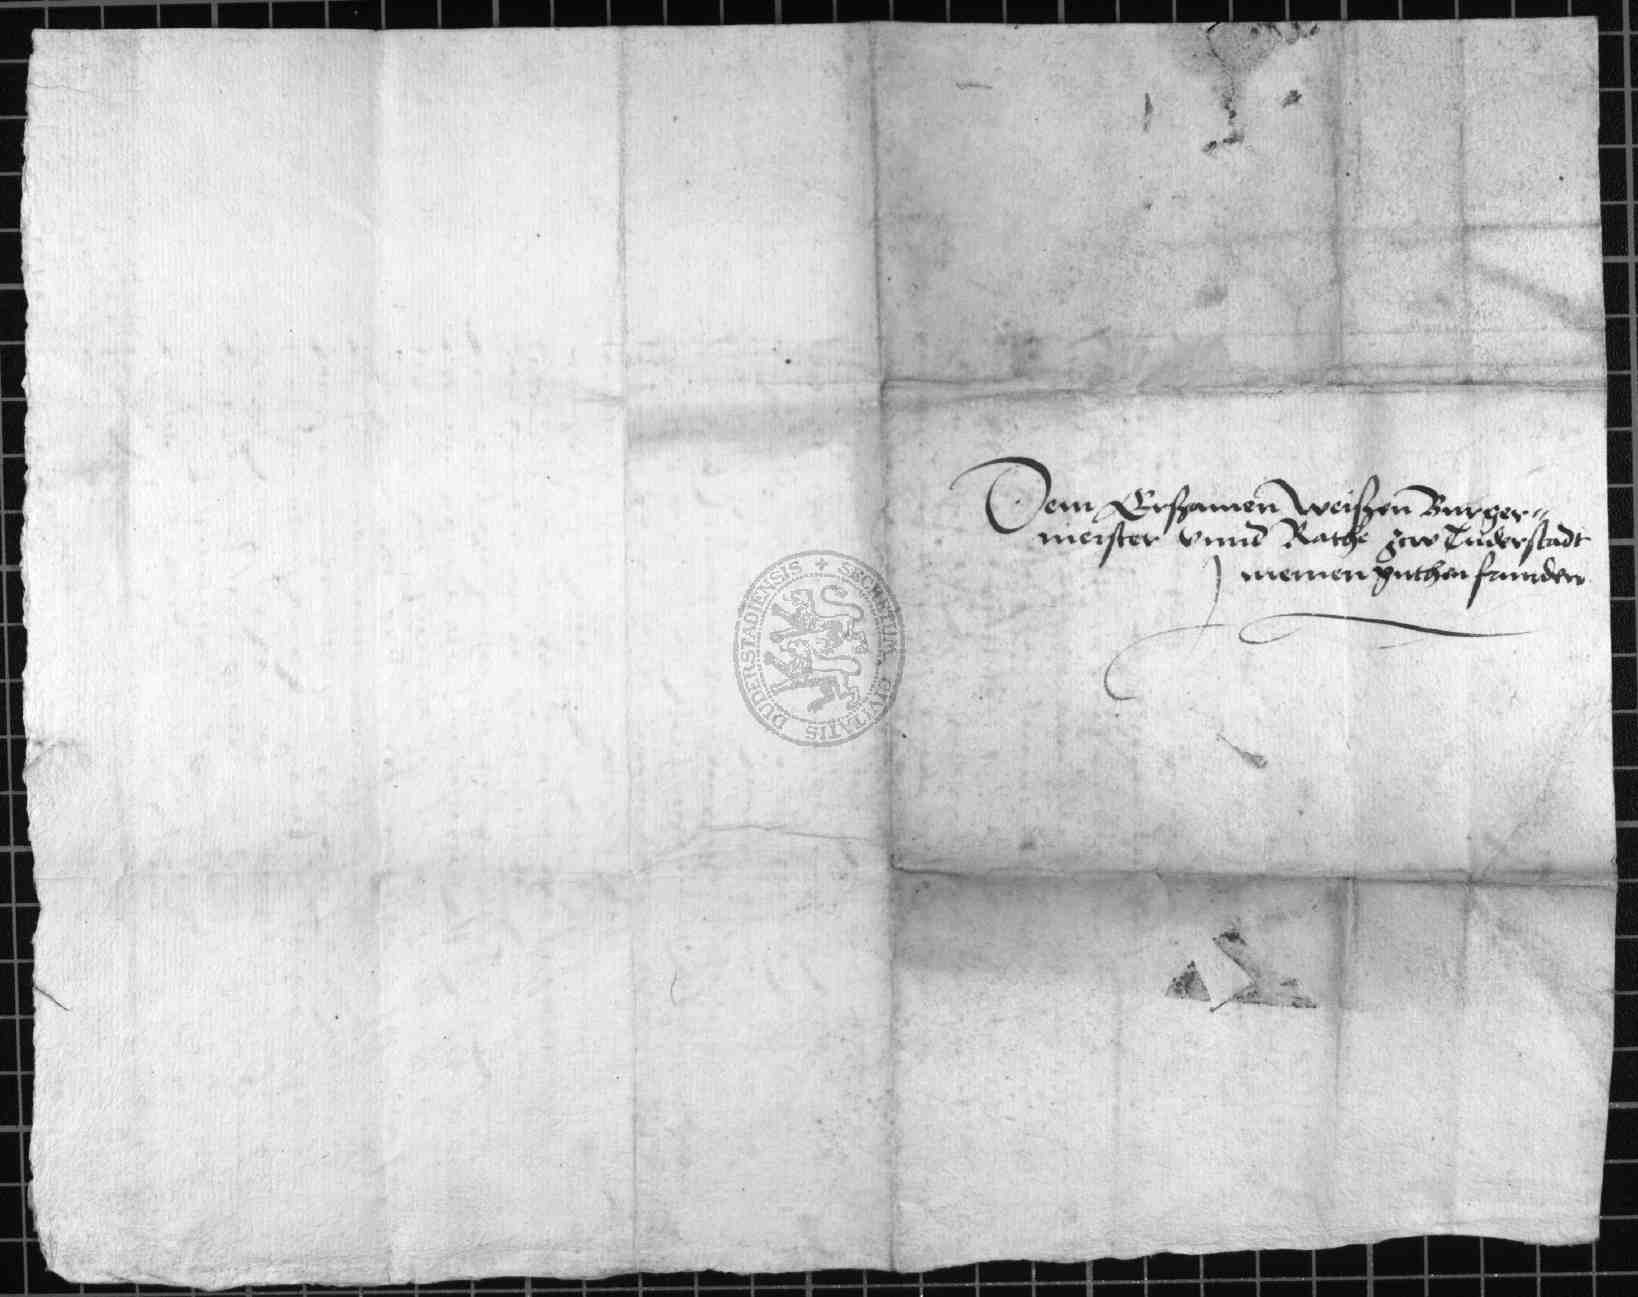 Dem Erszamen Weiszen Burger-
meister vnnd Rathe zcw Duderstadt
meinen guthen frunden
SECRETUM CIVITATIS DUDERSTADIENSIS